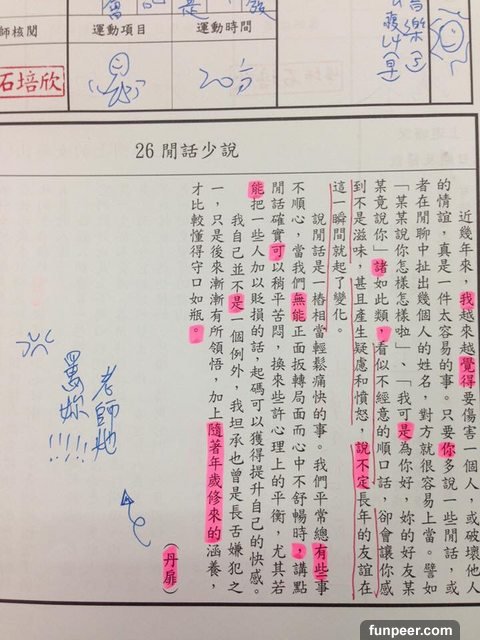 師核閱
運動項目
運動時間
石培欣
20分
音樂了
26 閒話少說
近幾年來，我越來越覺得要傷害一個人，或破壞他人
的情誼，真是一件太容易的事。只要你多說一些閒話，或
者在閒聊中扯出幾個人的姓名，對方就很容易上當。譬如
「某某說你怎樣怎樣啦」、「我可是為你好，妳的好友某
某竟說你」諸如此類，看似不經意的順口話，卻會讓你感
到不是滋味，甚且產生疑慮和憤怒，說不定長年的友誼在
這一瞬間就起了變化。
說閒話是一樁相當輕鬆痛快的事。我們平常總有些事
不順心，當我們無能正面扳轉局面而心中不舒暢時，講點
閒話確實可以稍平苦悶，換來些許心理上的平衡，尤其若
能把一些人加以貶損的話，起碼可以獲得提升自己的快感。
我自己並不是一個例外，我坦承也曾是長舌嫌犯之
一，只是後來漸漸有所領悟，加上隨著年歲修來的涵養，
才比較懂得守口如瓶。
（丹扉）
老師她
妳!!!!
funpeer.com